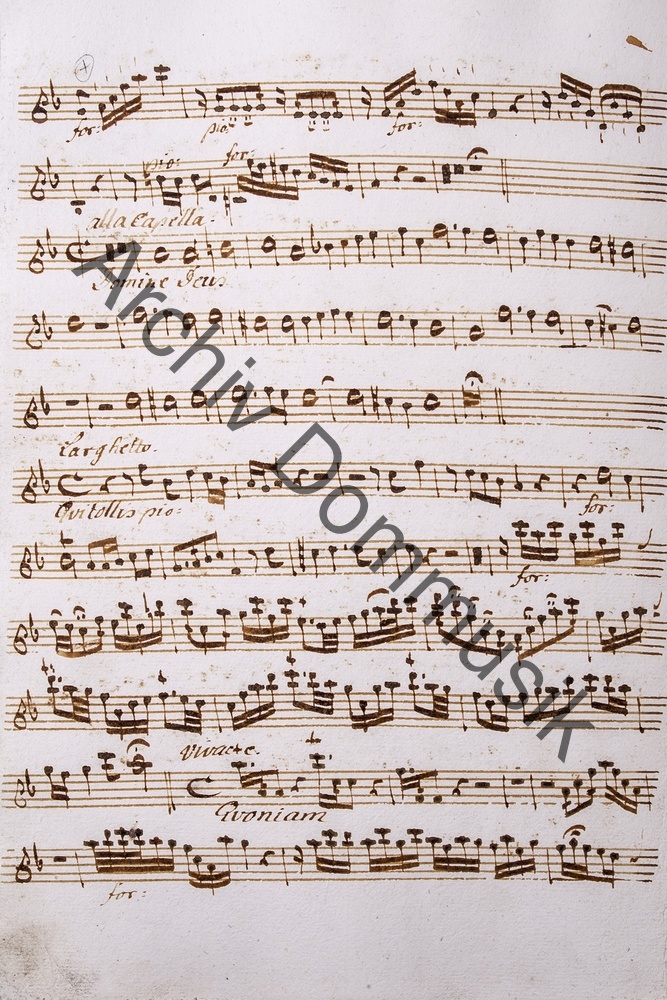 for: pio: for:
pio: for:
alla Capella
Domine Deus
Larghetto.
Qui tollis pio: for:
for:
Vivace.
Quoniam
for:
Archiv Dommusik